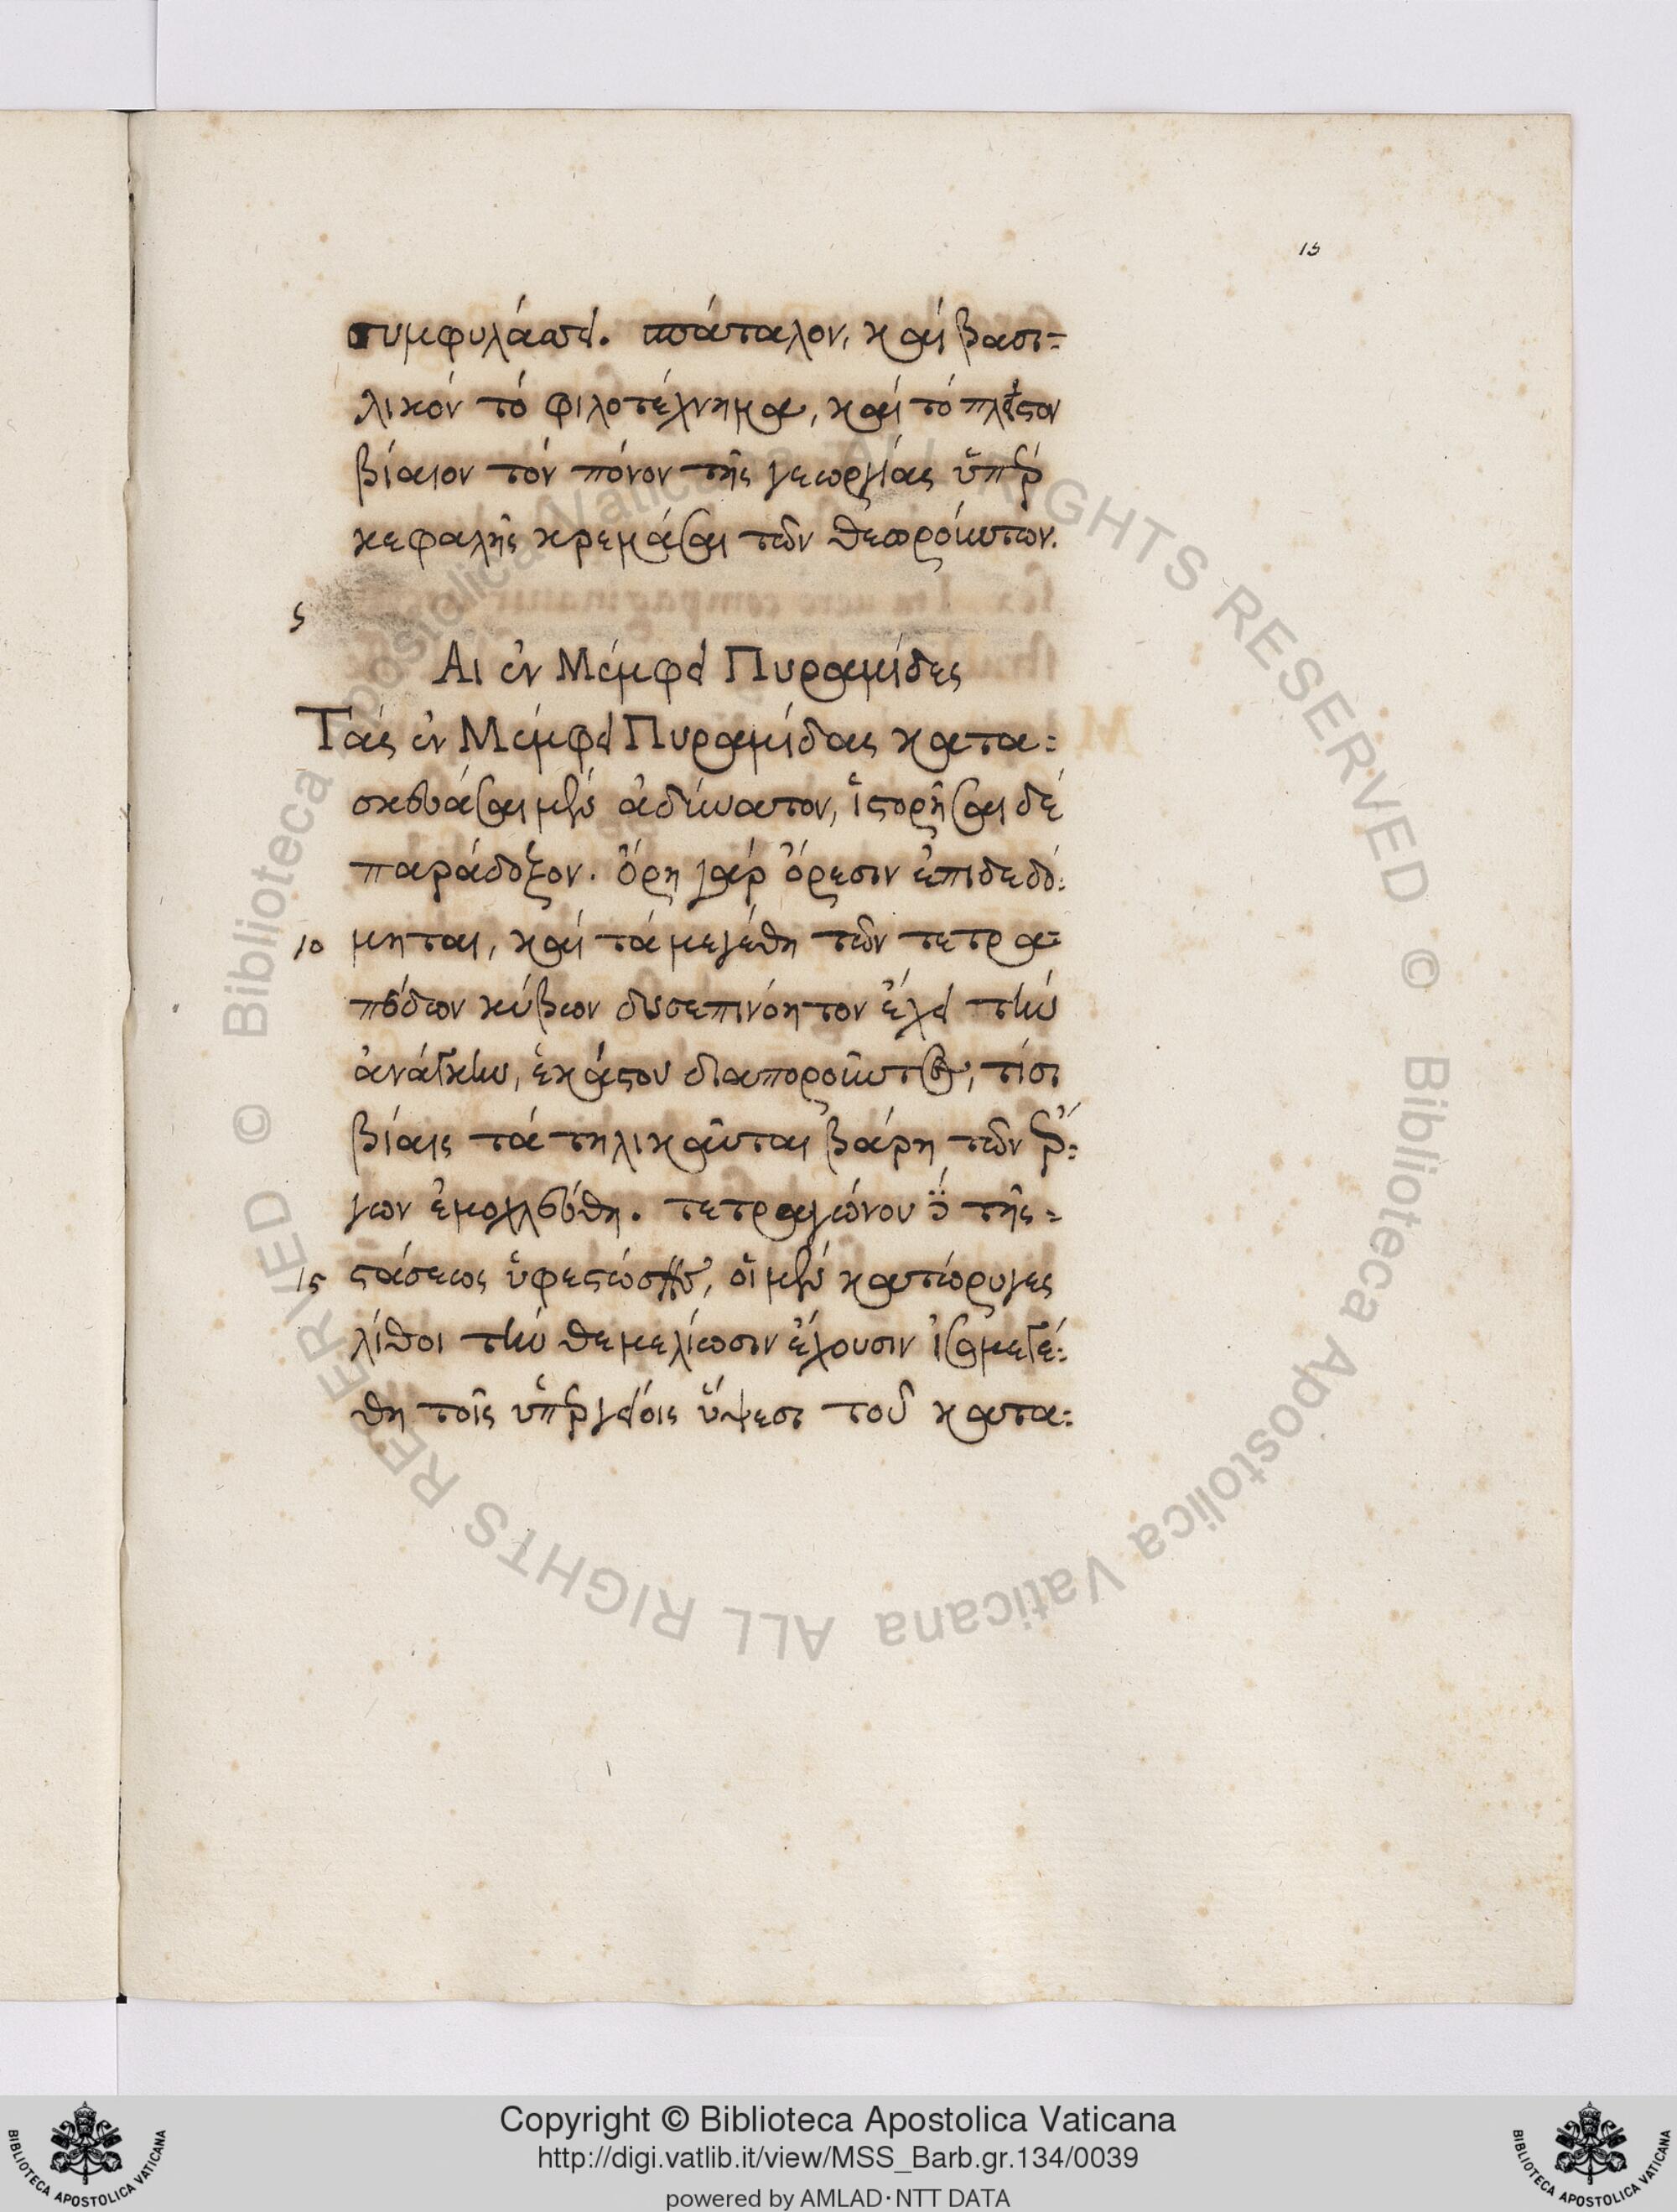 15
συμφυλάττει. σπάταλον, καὶ βασι-
λικὸν τὸ φιλοτέχνημα, καὶ τὸ πλεῖστον
βίαιον τὸν πόνον τῆς γεωργίας ὑπὲρ
κεφαλῆς κρεμάσαι τῶν θεωρούντων.
5
Αι ἐν Μέμφει Πυραμίδες
Τὰς ἐν Μέμφει Πυραμίδας κατα-
σκευάσαι μὲν ἀδύνατον, ἱστορῆσαι δὲ
παράδοξον. ὄρη γὰρ ὄρεσιν ἐπιδεδό-
10 μηται, καὶ τὰ μεγέθη τῶν τετρα-
πόδων κύβων δυσεπινόητον ἔχει τὴν
ἀνάγκην, ἑκάστου διαποροῦντος, τίσι
βίαις τὰ τηλικαῦται βάρη τῶν ἔρ-
γων ἐμοχλεύθη. τετραγώνου δὲ τῆς-
15 στάσεως ὑφεστώσης, οἱ μὲν κατώρυγες
λίθοι τὴν θεμελίωσιν ἔχουσιν ἰσομεγέ-
θη τοῖς ὑπεργείοις ὕψεσι τοῦ κατα-
© Biblioteca Apostolica Vaticana ALL RIGHTS RESERVED
© Biblioteca Apostolica Vaticana ALL RIGHTS RESERVED
Copyright © Biblioteca Apostolica Vaticana
http://digi.vatlib.it/view/MSS_Barb.gr.134/0039
powered by AMLAD·NTT DATA
BIBLIOTECA APOSTOLICA VATICANA
BIBLIOTECA APOSTOLICA VATICANA